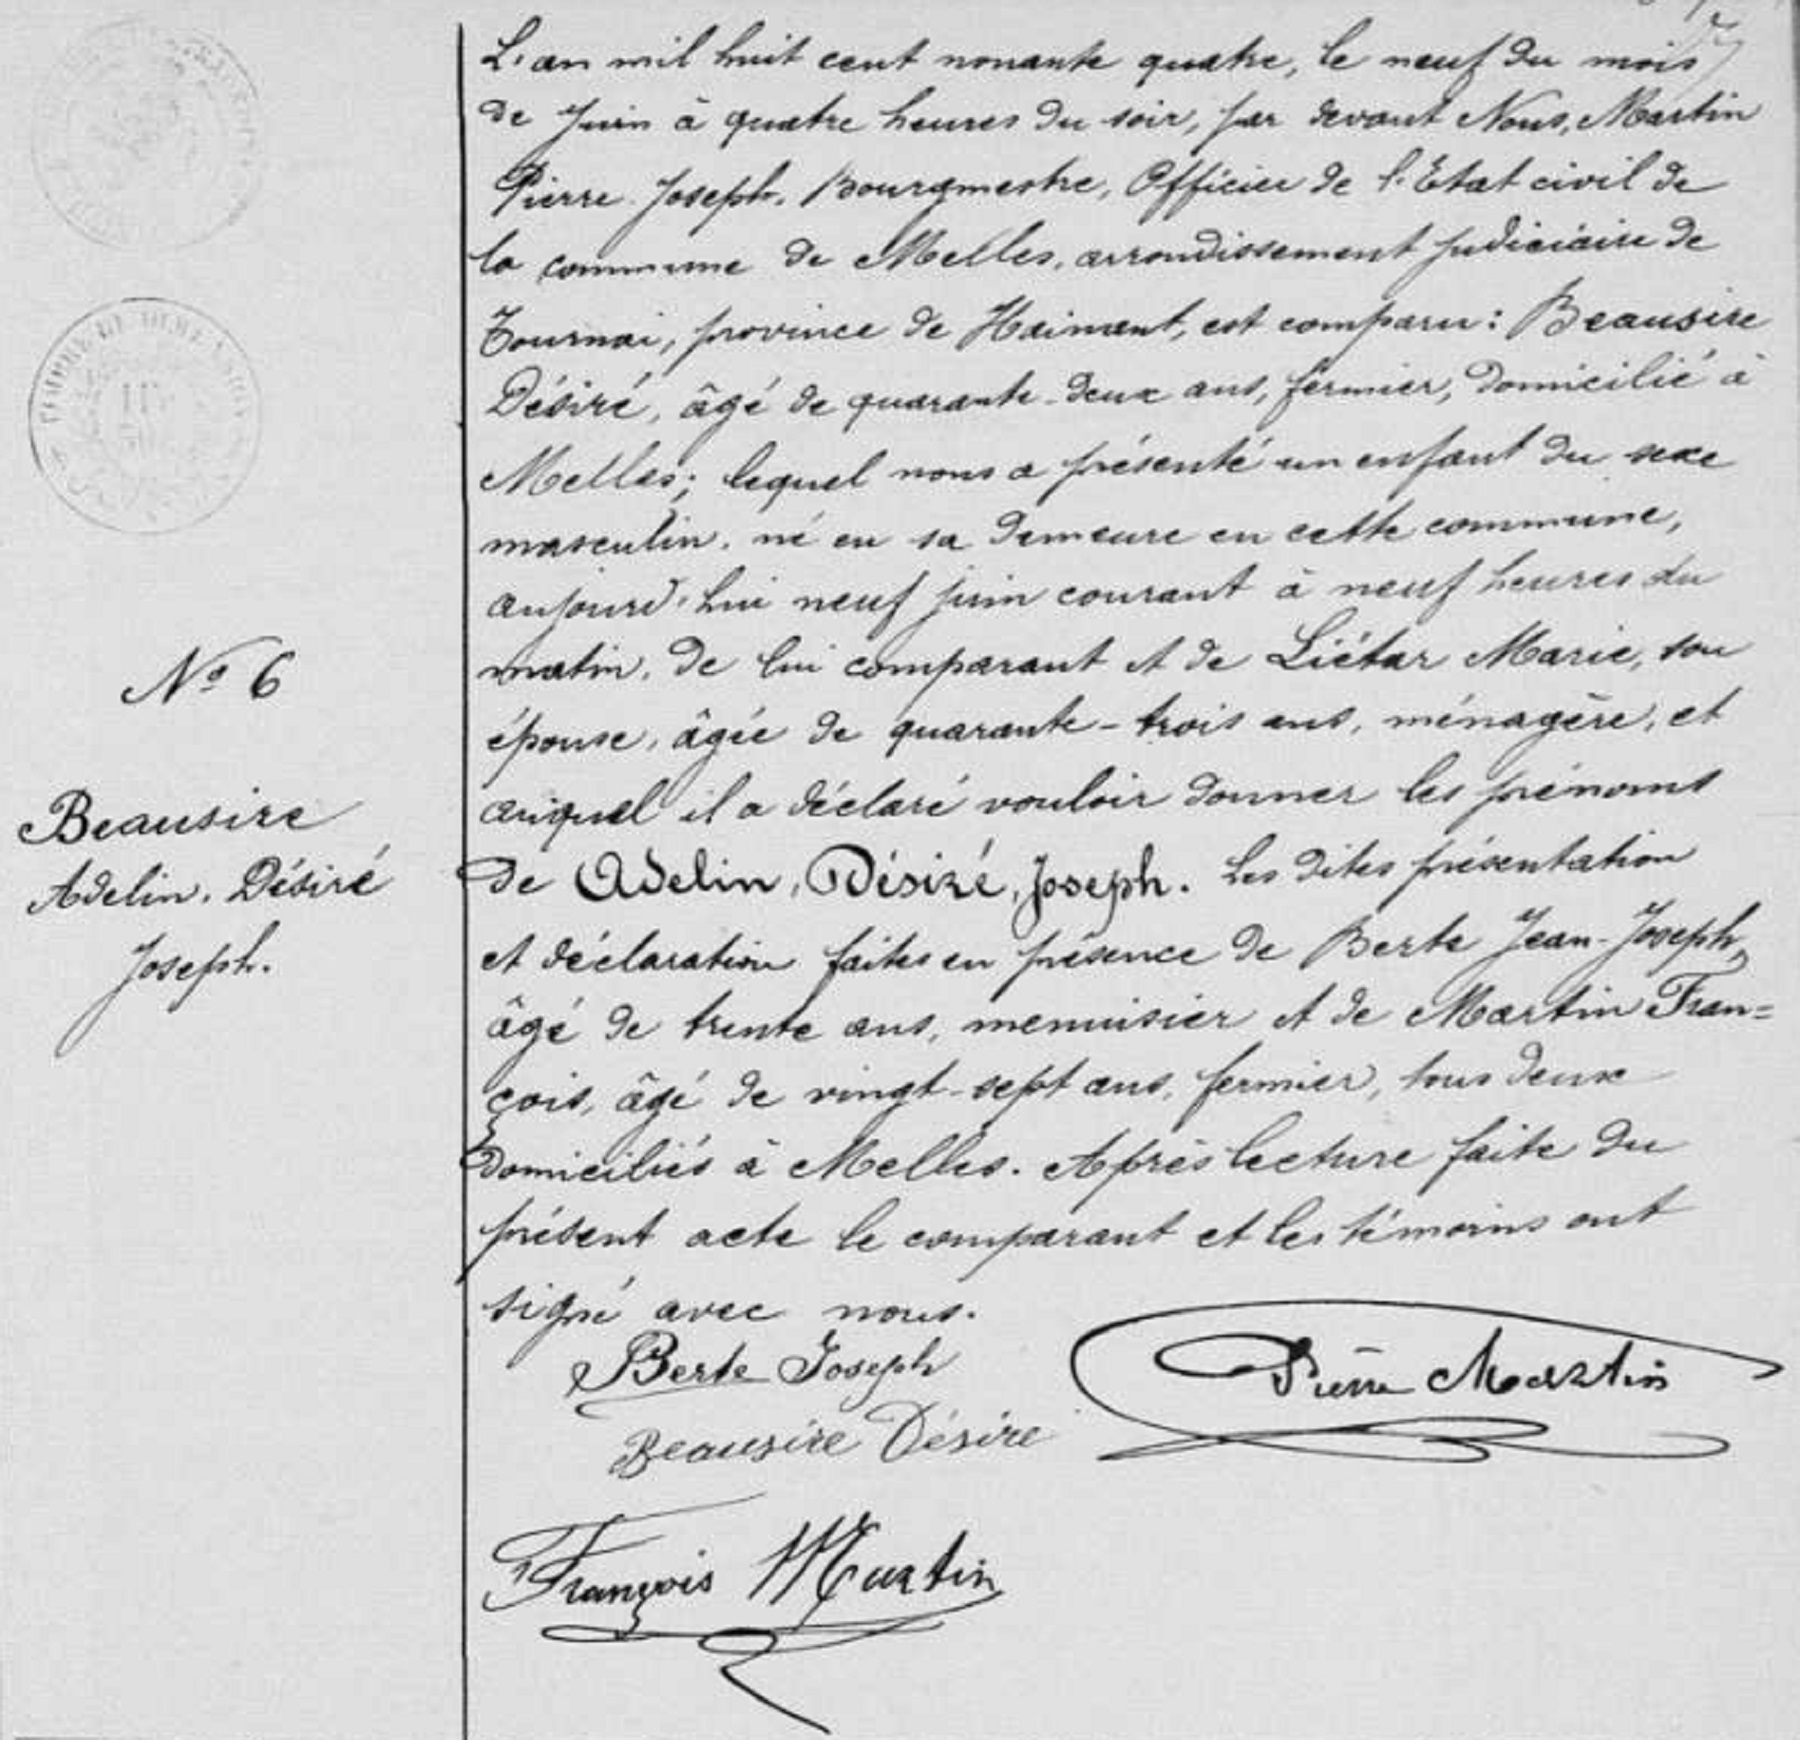 L'an mil huit cent nonante quatre, le neuf du mois
de Juin à quatre heures du soir, par devant Nous, Martin
Pierre Joseph, Bourgmestre, Officier de l'Etat civil de
la commune de Melles, arrondissement judiciaire de
Tournai, province de Hainaut, est comparu : Beausire
Désiré, âgé de quarante-deux ans, fermier, domicilié à
Melles; lequel nous a présenté un enfant du sexe
masculin, né en sa demeure en cette commune,
aujourd'hui neuf juin courant à neuf heures du
matin, de lui comparant et de Liétar Marie, son
épouse, âgée de quarante-trois ans, ménagère, et
auquel il a déclaré vouloir donner les prénoms
de Adelin, Désiré, Joseph. Les dites présentation
et déclaration faites en présence de Berte Jean-Joseph,
âgé de trente ans, menuisier et de Martin Fran=
çois, âgé de vingt-sept ans, fermier, tous deux
domiciliés à Melles. Après lecture faite du
présent acte le comparant et les témoins ont
signé avec nous.
Berte Joseph
Pierre Martin
Beausire Désire
François Martin
No 6
Beausire
Adelin, Désiré
Joseph.